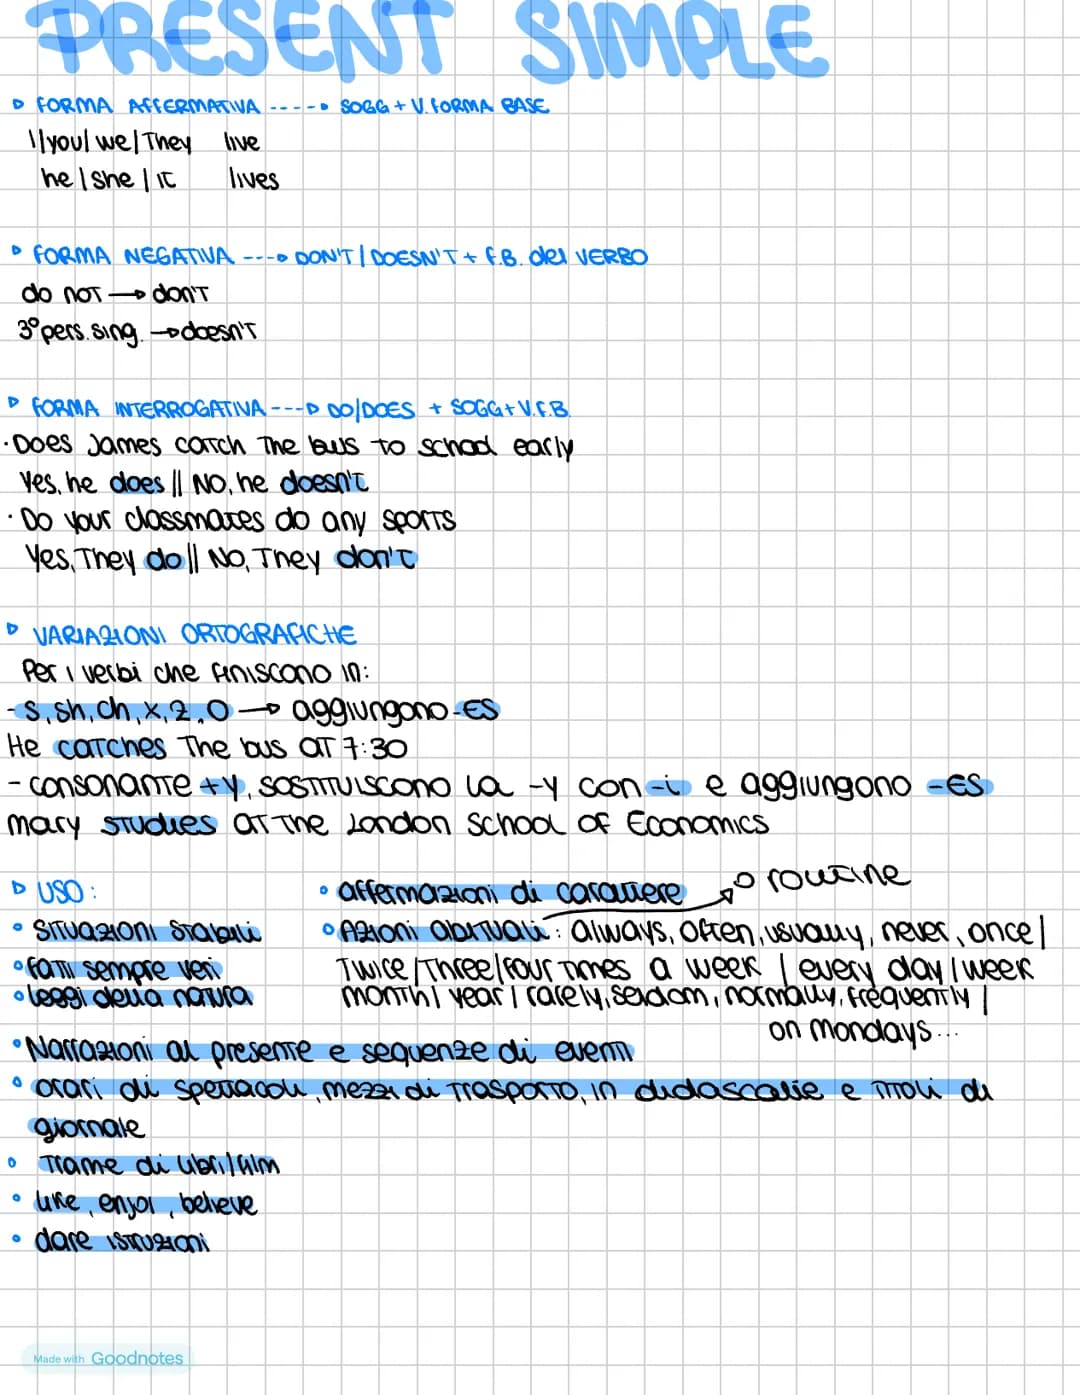 PRESENT SIMPLE
FORMA AFFERMATIVA ----→ SOGG + V. FORMA BASE
I|you| we| They live
he | she | it lives
FORMA NEGATIVA ---→ DON'T | DOESN'T + F.B. del VERBO
do not → don't
3° pers. sing. → doesn't
FORMA INTERROGATIVA ---→ DO/DOES + SOGG + V.F.B.
· Does James catch the bus to school early
Yes, he does || No, he doesn't
· Do your classmates do any sports
Yes, They do || No, They don't
VARIAZIONI ORTOGRAFICHE
Per i verbi che finiscono in:
- s, sh, ch, x, z, o → aggiungono -ES
He catches the bus at 7:30
- consonante + y, sostituiscono la -y con -i e aggiungono -ES
mary studies at the London School of Economics
USO:
• affermazioni di carattere → routine
• situazioni stabili
• Azioni abituali: always, often, usually, never, once |
• fatti sempre veri
twice | three | four times a week | every day | week
• leggi della natura
month | year | rarely, seldom, normally, frequently |
on mondays...
• Narrazioni al presente e sequenze di eventi
• orari di spettacoli, mezzi di trasporto, in didascalie e titoli di
giornale
• Trame di libri/film
• like, enjoi, believe
• dare istruzioni
Made with Goodnotes